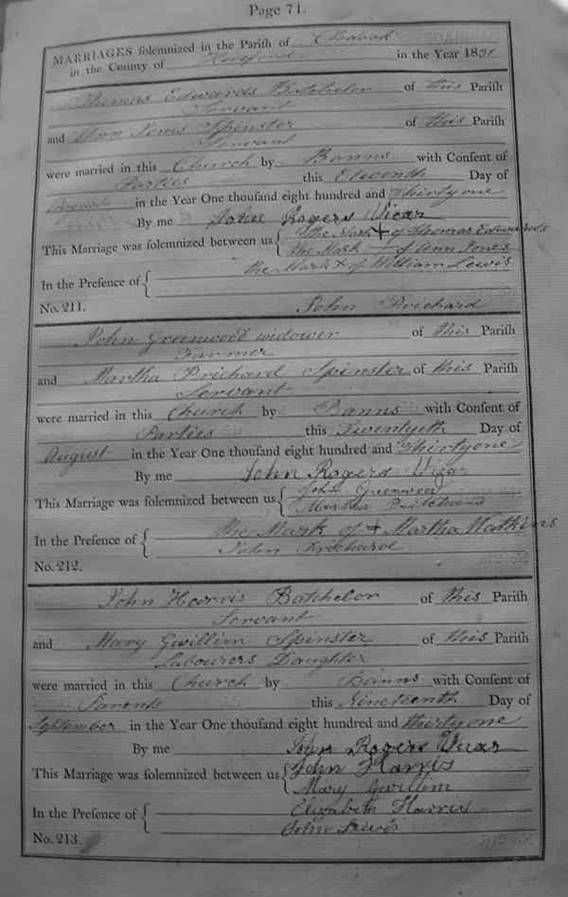 Page 71.
MARRIAGES solemnized in the Parish of
in the County of Hereford in the Year 1831
Thomas Edwards Batchelor of this Parish
Servant
and Ann Jones Spinster of this Parish
Servant
were married in this Church by Banns with Consent of
Parties this Eleventh Day of
in the Year One thousand eight hundred and Thirty one
By me John Rogers Vicar
This Marriage was solemnized between us { The Mark + of Thomas Edwards
The Mark + of Ann Jones
In the Presence of { the Mark + of William Lewis
No. 211. John Prichard
John Greenwood widower of this Parish
Farmer
and Martha Prichard Spinster of this Parish
Servant
were married in this Church by Banns with Consent of
Parties this Twentyeth Day of
August in the Year One thousand eight hundred and Thirty one
By me John Rogers Vicar
This Marriage was solemnized between us { John Greenwood
Martha Pritchard
In the Presence of { the Mark of + Martha Watkins
John Prichard
No. 212.
John Harris Batchelor of this Parish
Servant
and Mary Gwillim Spinster of this Parish
Labourers Daughter
were married in this Church by Banns with Consent of
Parents this Nineteenth Day of
September in the Year One thousand eight hundred and thirty one
By me John Rogers Vicar
This Marriage was solemnized between us { John Harris
Mary Gwillim
In the Presence of { Elizabeth Harris
John Lewis
No. 213.